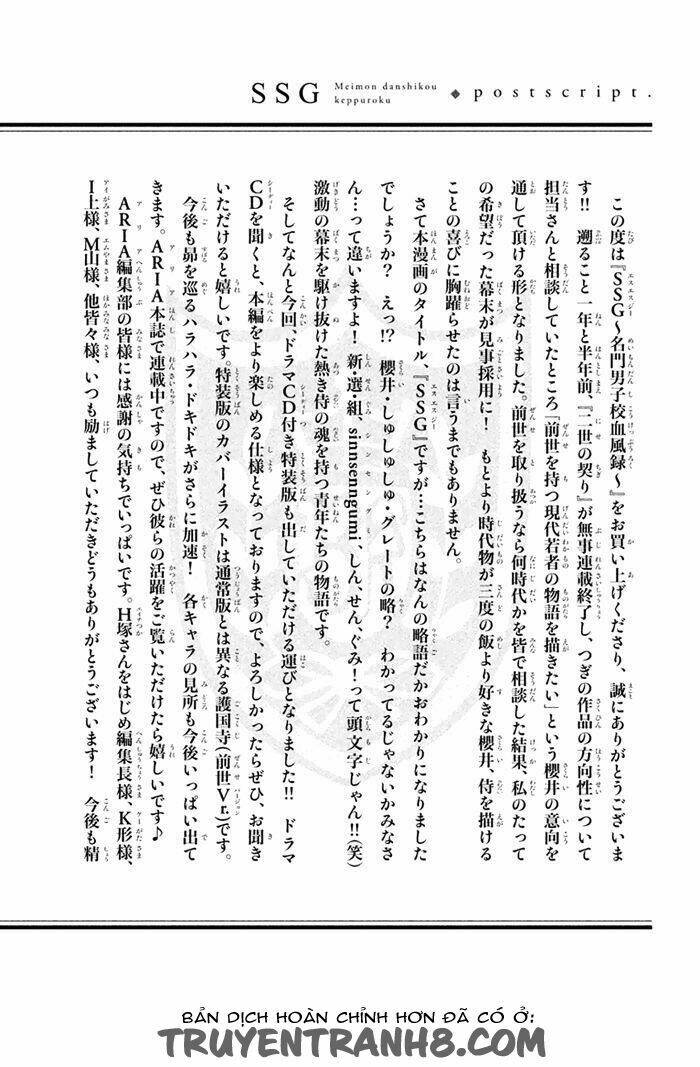 SSG Meimon danshikou
keppuroku ◆ postscript.
この度は『SSG～名門男子校血風録～』をお買い上げくださり、誠にありがとうございま
す!! 遡ること一年と半年前、『二世の契り』が無事連載終了し、つぎの作品の方向性について
担当さんと相談していたところ「前世を持つ現代若者の物語を描きたい」という櫻井の意向を
通して頂ける形となりました。前世を取り扱うなら何時代かを皆で相談した結果、私のたって
の希望だった幕末が見事採用に! もとより時代物が三度の飯より好きな櫻井、侍を描ける
ことの喜びに胸躍らせたのは言うまでもありません。
さて本漫画のタイトル、『SSG』ですが…こちらはなんの略語だかおわかりになりました
でしょうか? えっ!? 櫻井・しゅしゅしゅ・グレートの略? わかってるじゃないかみなさ
ん…って違いますよ! 新・選・組、sinnsenngumi、しん、せん、ぐみ!って頭文字じゃん!!(笑)
激動の幕末を駆け抜けた熱き侍の魂を持つ青年たちの物語です。
そしてなんと今回、ドラマCD付き特装版も出していただける運びとなりました!! ドラマ
CDを聞くと、本編をより楽しめる仕様となっておりますので、よろしかったらぜひ、お聞き
いただけると嬉しいです。特装版のカバーイラストは通常版とは異なる護国寺(前世Ver.)です。
今後も昴を巡るハラハラ・ドキドキがさらに加速! 各キャラの見所も今後いっぱい出て
きます。ARIA本誌で連載中ですので、ぜひ彼らの活躍をご覧いただけたら嬉しいです♪
ARIA編集部の皆様には感謝の気持ちでいっぱいです。H塚さんをはじめ編集長様、K形様、
I上様、M山様、他皆々様、いつも励ましていただきどうもありがとうございます! 今後も精
BẢN DỊCH HOÀN CHỈNH HƠN ĐÃ CÓ Ở:
TRUYENTRANH8.COM